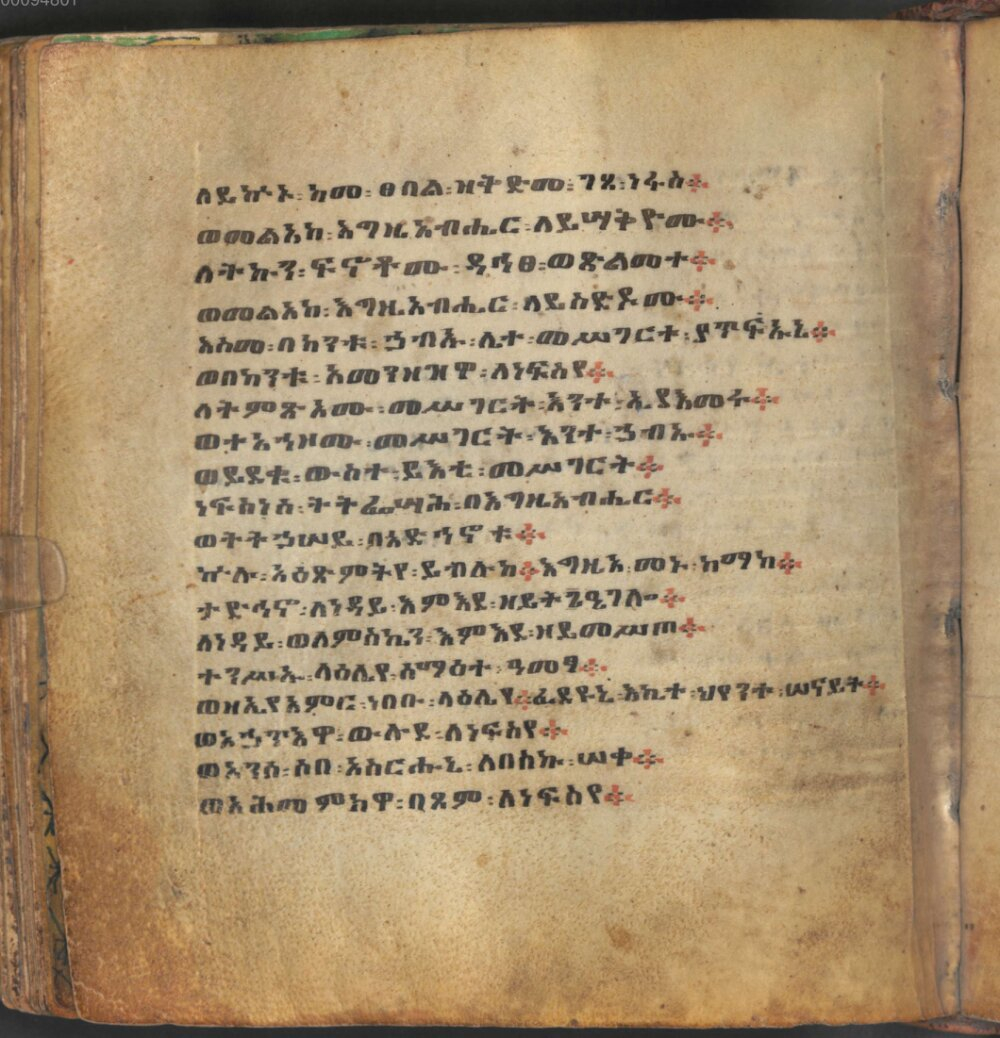 ለይኩኑ፡ከመ፡ፀበል፡ዘቅድመ፡ገጸ፡ነፋስ፨
ወመልአከ፡እግዚአብሔር፡ለይሣቅዮሙ፨
ለትኩን፡ፍኖቶሙ፡ዳኅፀ፡ወጽልመተ፨
ወመልአከ፡እግዚአብሔር፡ለይስድዶሙ፨
እስመ፡በከንቱ፡ኃብኡ፡ሊተ፡መሥገርተ፡ያጥፍኡኒ፨
ወበከንቱ፡አመንዘዝዋ፡ለነፍስየ፨
ለትምጽአሙ፡መሥገርት፡እንተ፡ኢያእመሩ፨
ወተአኀዞሙ፡መሥገርት፡እንተ፡ኃብኡ፨
ወይደቁ፡ውስተ፡ይእቲ፡መሥገርት፨
ነፍስነሰ፡ትትፌሣሕ፡በእግዚአብሔር፨
ወትትኃሠይ፡በአድኅኖቱ፨
ኵሉ፡አዕጽምትየ፡ይብሉከ፨እግዚአ፡መኑ፡ከማከ፨
ታድኅኖ፡ለነዳይ፡እምእደ፡ዘይትኄዒገሎ፨
ለነዳይ፡ወለምስኪን፡እምእደ፡ዘይመሥጦ፨
ተንሥኡ፡ላዕሌየ፡ሰማዕተ፡ዓመፃ፨
ወዘኢየአምር፡ነበቡ፡ላዕሌየ፨ፈደዩኒ፡እኪተ፡ህየንተ፡ሠናይት፨
ወአኃጥእዋ፡ውሉደ፡ለነፍስየ፨
ወአንሰ፡ሶበ፡አስርሑኒ፡ለበስኩ፡ሠቀ፨
ወአሕመምክዋ፡በጾም፡ለነፍስየ፨